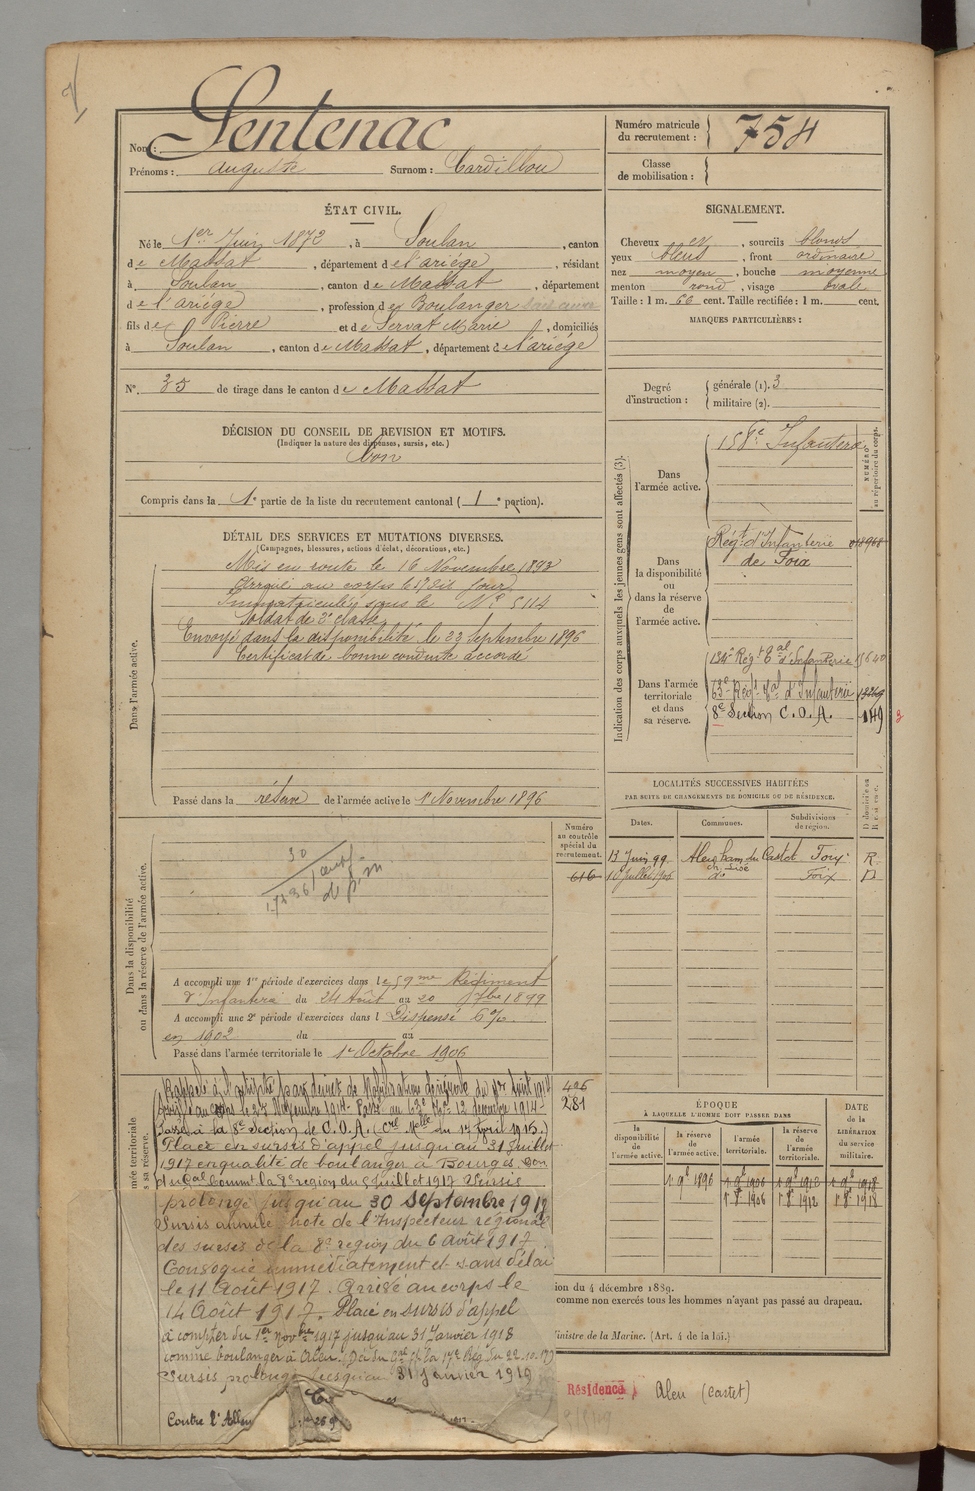 Nom : Sentenac
Prénoms : auguste Surnom : Cardillou
Numéro matricule du recrutement : 754
Classe de mobilisation :
ÉTAT CIVIL.
Né le 1er Juin 1872, à Soulan, canton
de Massat, département de l'ariége, résidant
à Soulan, canton de Massat, département
de l'ariége, profession de Boulanger
fils de Pierre et de Servat Marie, domiciliés
à Soulan, canton de Massat, département de l'ariége
N° 35 de tirage dans le canton de Massat
DÉCISION DU CONSEIL DE REVISION ET MOTIFS.
(Indiquer la nature des dispenses, sursis, etc.)
bon
Compris dans la 1e partie de la liste du recrutement cantonal (1e portion).
SIGNALEMENT.
Cheveux et, sourcils blonds
yeux bleus, front ordinaire
nez moyen, bouche moyenne
menton rond, visage ovale
Taille : 1 m. 66 cent. Taille rectifiée : 1 m. cent.
MARQUES PARTICULIÈRES :
Degré d'instruction : générale (1). 3
militaire (2).
DÉTAIL DES SERVICES ET MUTATIONS DIVERSES.
(Campagnes, blessures, actions d'éclat, décorations, etc.)
Dans l'armée active.
Mis en route le 16 Novembre 1893
Arrivé au corps le dit jour
Immatriculé sous le N° 5114
Soldat de 2e classe
Envoyé dans la disponibilité le 23 Septembre 1896
Certificat de bonne conduite accordé
Passé dans la réserve de l'armée active le 1er Novembre 1896
Indication des corps auxquels les jeunes gens sont affectés (3).
NUMÉRO au répertoire du corps.
Dans l'armée active.
158e Infanterie
Dans la disponibilité ou dans la réserve de l'armée active.
Régt d'Infanterie
de Foix
Dans l'armée territoriale et dans sa réserve.
134e Régt tal d'Infanterie 15640
63e Régt tal d'Infanterie
8e Section C.O.A. 149
3
LOCALITÉS SUCCESSIVES HABITÉES
PAR SUITE DE CHANGEMENTS DE DOMICILE OU DE RÉSIDENCE.
Dates. Communes. Subdivisions de région. D domicile ou R résidence.
13 Juin 99 Aleu Foix R
10 Juillet 1906 do Foix D
Dans la disponibilité ou dans la réserve de l'armée active.
Numéro au contrôle spécial du recrutement.
616
A accompli une 1re période d'exercices dans le 59me Régiment
d'Infanterie du 24 Août au 20 7bre 1899
A accompli une 2e période d'exercices dans l Dispensé 6%
en 1902 du au
Passé dans l'armée territoriale le 1er Octobre 1906
281
Rappelé à l'activité par décret de Mobilisation Générale du 1er Août 1914
Arrivé au corps le 27 Novembre 1914 - Passé au 63e Tal 12 décembre 1914 -
Passé à la 8e Section de C.O.A. (Cre Melle du 14 Avril 1915.)
Placé en sursis d'appel jusqu'au 31 Juillet
1917 en qualité de boulanger à Bourges. Don
du Gal Commt la 8e région du 5 Juillet 1917 Sursis
prolongé jusqu'au 30 Septembre 1917
Sursis annulé note de l'Inspecteur régional
des sursis de la 8e région du 6 Août 1917.
Convoqué immédiatement et sans délai
le 11 Août 1917. Arrivé au corps le
14 Août 1917. Placé en sursis d'appel
à compter du 1er Novbre 1917 jusqu'au 31 Janvier 1918
comme boulanger à Aleu.
Sursis prolongé jusqu'au 31 Janvier 1919
Contre l'Allem
ÉPOQUE
À LAQUELLE L'HOMME DOIT PASSER DANS
DATE de la LIBÉRATION du service militaire.
la disponibilité de l'armée active. la réserve de l'armée active. l'armée territoriale. la réserve de l'armée territoriale.
1 9e 1896 1 9e 1906 1 9e 1912 1 9e 1918
1 8e 1906 1 8e 1912 1 8e 1918
ion du 4 décembre 1889.
comme non exercés tous les hommes n'ayant pas passé au drapeau.
Ministre de la Marine. (Art. 4 de la loi.)
Résidence Aleu (Castet)